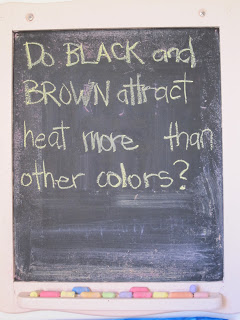 Do BLACK and
BROWN attract
heat more than
other colors?